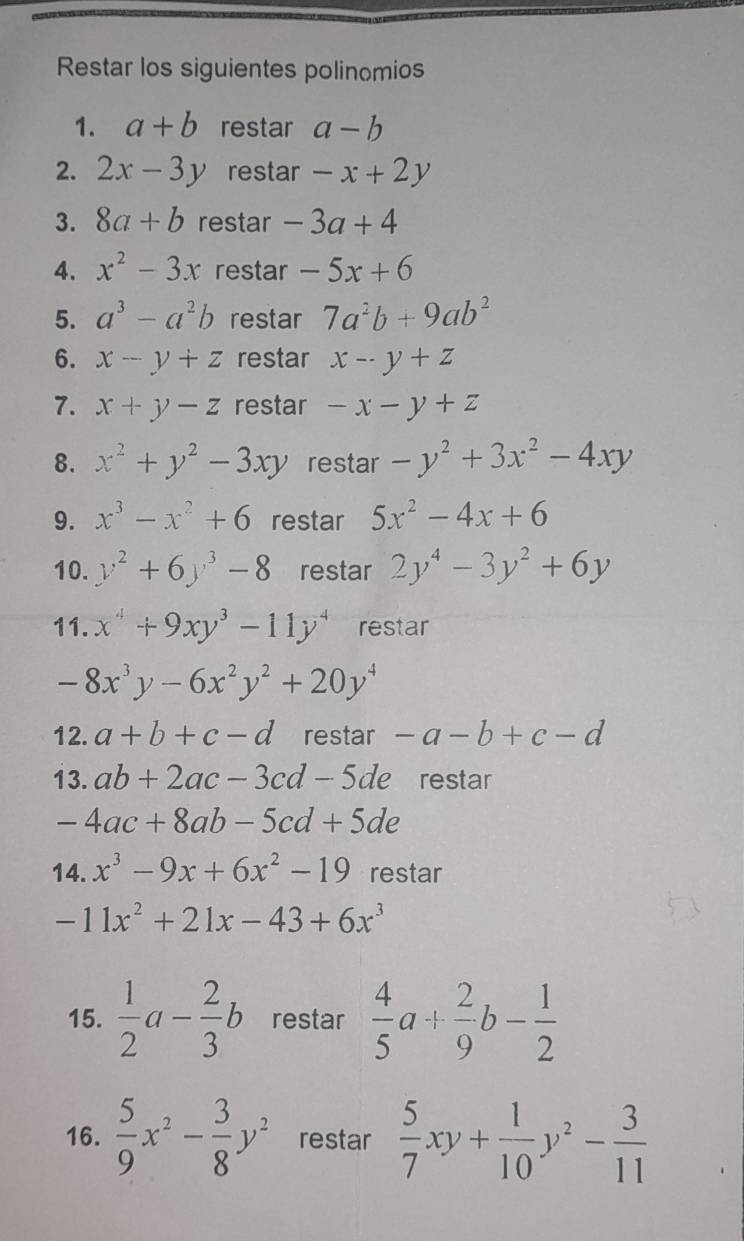 Restar los siguientes polinomios
1. a + b restar a − b
2. 2x − 3y restar − x + 2y
3. 8a + b restar − 3a + 4
4. x² − 3x restar − 5x + 6
5. a³ − a²b restar 7a²b + 9ab²
6. x − y + z restar x − y + z
7. x + y − z restar − x − y + z
8. x² + y² − 3xy restar − y² + 3x² − 4xy
9. x³ − x² + 6 restar 5x² − 4x + 6
10. y² + 6y³ − 8 restar 2y⁴ − 3y² + 6y
11. x⁴ + 9xy³ − 11y⁴ restar
− 8x³y − 6x²y² + 20y⁴
12. a + b + c − d restar − a − b + c − d
13. ab + 2ac − 3cd − 5de restar
− 4ac + 8ab − 5cd + 5de
14. x³ − 9x + 6x² − 19 restar
−11x² + 21x − 43 + 6x³
15. 1/2 a − 2/3 b restar 4/5 a + 2/9 b − 1/2
16. 5/9 x² − 3/8 y² restar 5/7 xy + 1/10 y² − 3/11